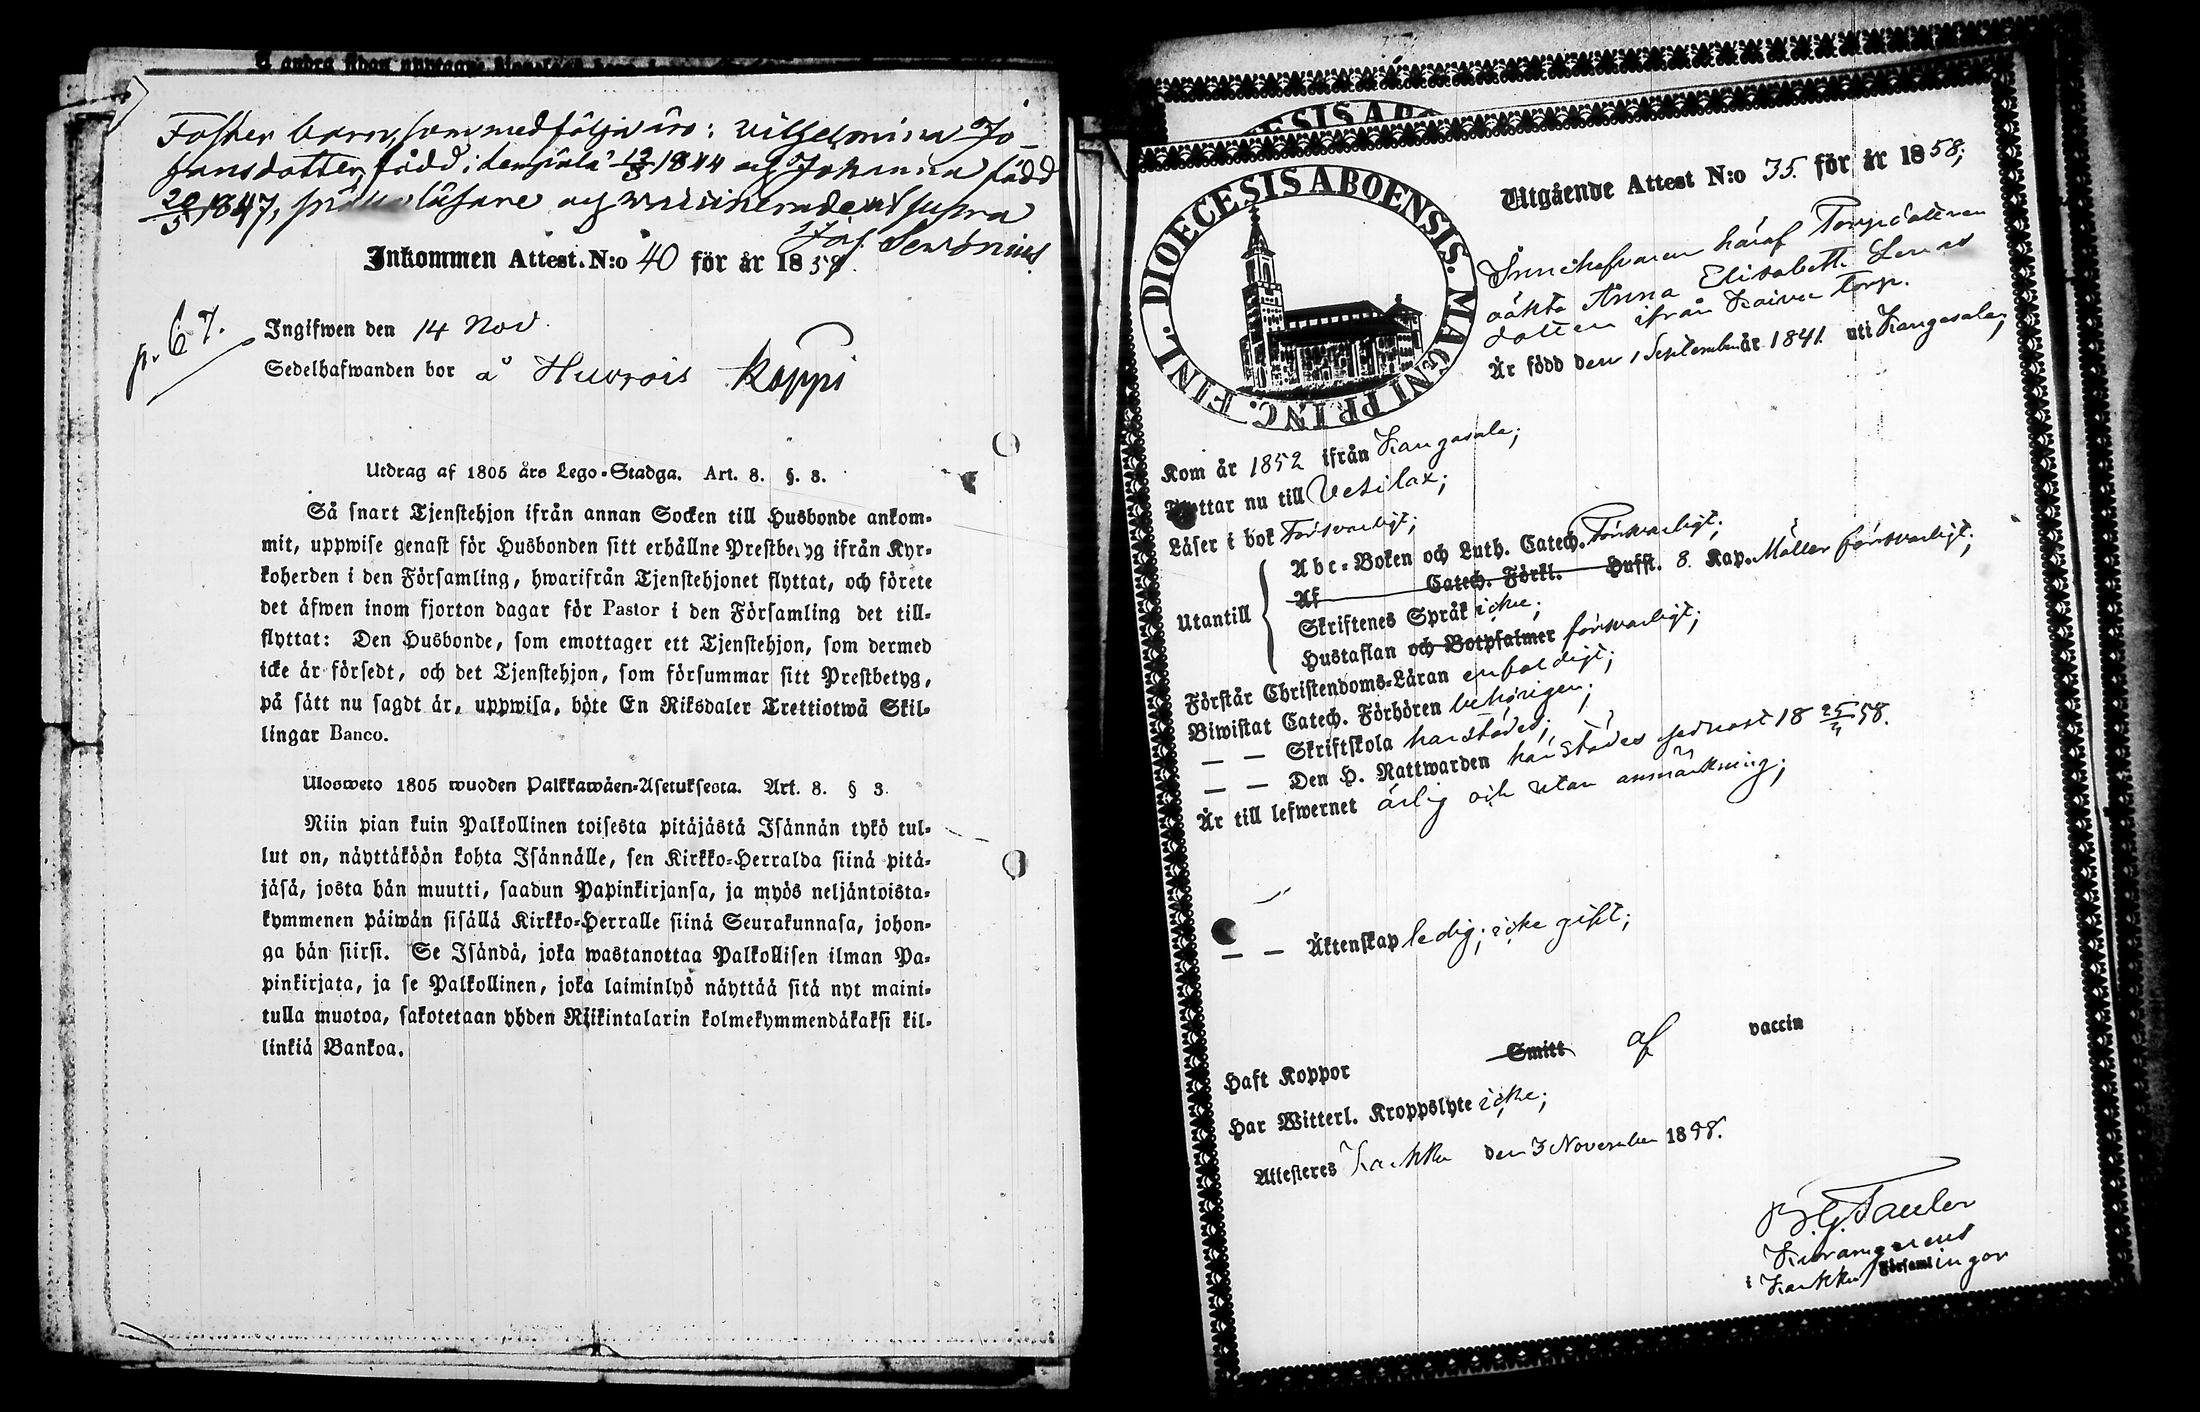 Foster barn, som medfölja äro: Vilhelmina Jo-
hansdotter, född i Lempäälä 12/3 1844 och Johanna född
20/5 1847, läsare och vaccinerade ut supra
Inkommen Attest. N:o 40 för år 1858.
p. 67.
Ingifwen den 14 Nov.
Sedelhafwanden bor å Huvrois Koppi
Utdrag af 1805 års Lego-Stadga. Art. 8. §. 3.
Så snart Tjenstehjon ifrån annan Socken till Husbonde ankom-
mit, uppwise genast för Husbonden sitt erhållne Prestbetyg ifrån Kyr-
koherden i den Församling, hwarifrån Tjenstehjonet flyttat, och förete
det äfwen inom fjorton dagar för Pastor i den Församling det till-
flyttat: Den Husbonde, som emottager ett Tjenstehjon, som dermed
icke är försedt, och det Tjenstehjon, som försummar sitt Prestbetyg,
på sätt nu sagdt är, uppwisa, böte En Riksdaler Trettiotwå Skil-
lingar Banco.
Ulosweto 1805 wuoden Palkkawäen-Asetuksesta. Art. 8. § 3.
Niin pian kuin Palkollinen toisesta pitäjästä Isännän tykö tul-
lut on, näyttäköön kohta Isännälle, sen Kirkko-Herralda siinä pitä-
jäsä, josta hän muutti, saadun Papinkirjansa, ja myös neljäntoista-
kymmenen päiwän sisällä Kirkko-Herralle siinä Seurakunnasa, johon-
ga hän siirsi. Se Isändä, joka wastanottaa Palkollisen ilman Pa-
pinkirjata, ja se Palkollinen, joka laiminlyö näyttää sitä nyt maini-
tulla muotoa, sakotetaan yhden Riikintalarin kolmekymmendäkaksi kil-
linkiä Bankoa.
DIOECESIS ABOENSIS. MAGNI PRINC. FINL.
Utgående Attest N:o 35. för år 1858;
Innehafvaren häraf Torpdottren
oäkta Anna Elisabeth Lenas
dotter ifrån Kaivu Torp.
Är född den 1 September år 1841. uti Kangasala;
Kom år 1852 ifrån Kangasala;
Flyttar nu till Vesilax;
Läser i bok Försvarligt;
Utantill
Abc-Boken och Luth. Catech. Försvarligt;
Af Catech. Förkl. Hufst. 8. Kap. Möller försvarligt;
Skriftenes Språk icke;
Hustaflan och Botpsalmer försvarligt;
Förstår Christendoms-Läran enfaldigt;
Biwistat Catech. Förhören behörigen;
— — Skriftskola härstädes;
— — Den H. Nattwarden härstädes sednast 18 25/4 58.
Är till lefwernet ärlig och utan anmärkning;
— — Äktenskap ledig; icke gift;
Haft Koppor Smitt af vaccin
Har Witterl. Kroppslyte icke;
Attesteres Karkku den 3 November 1858.